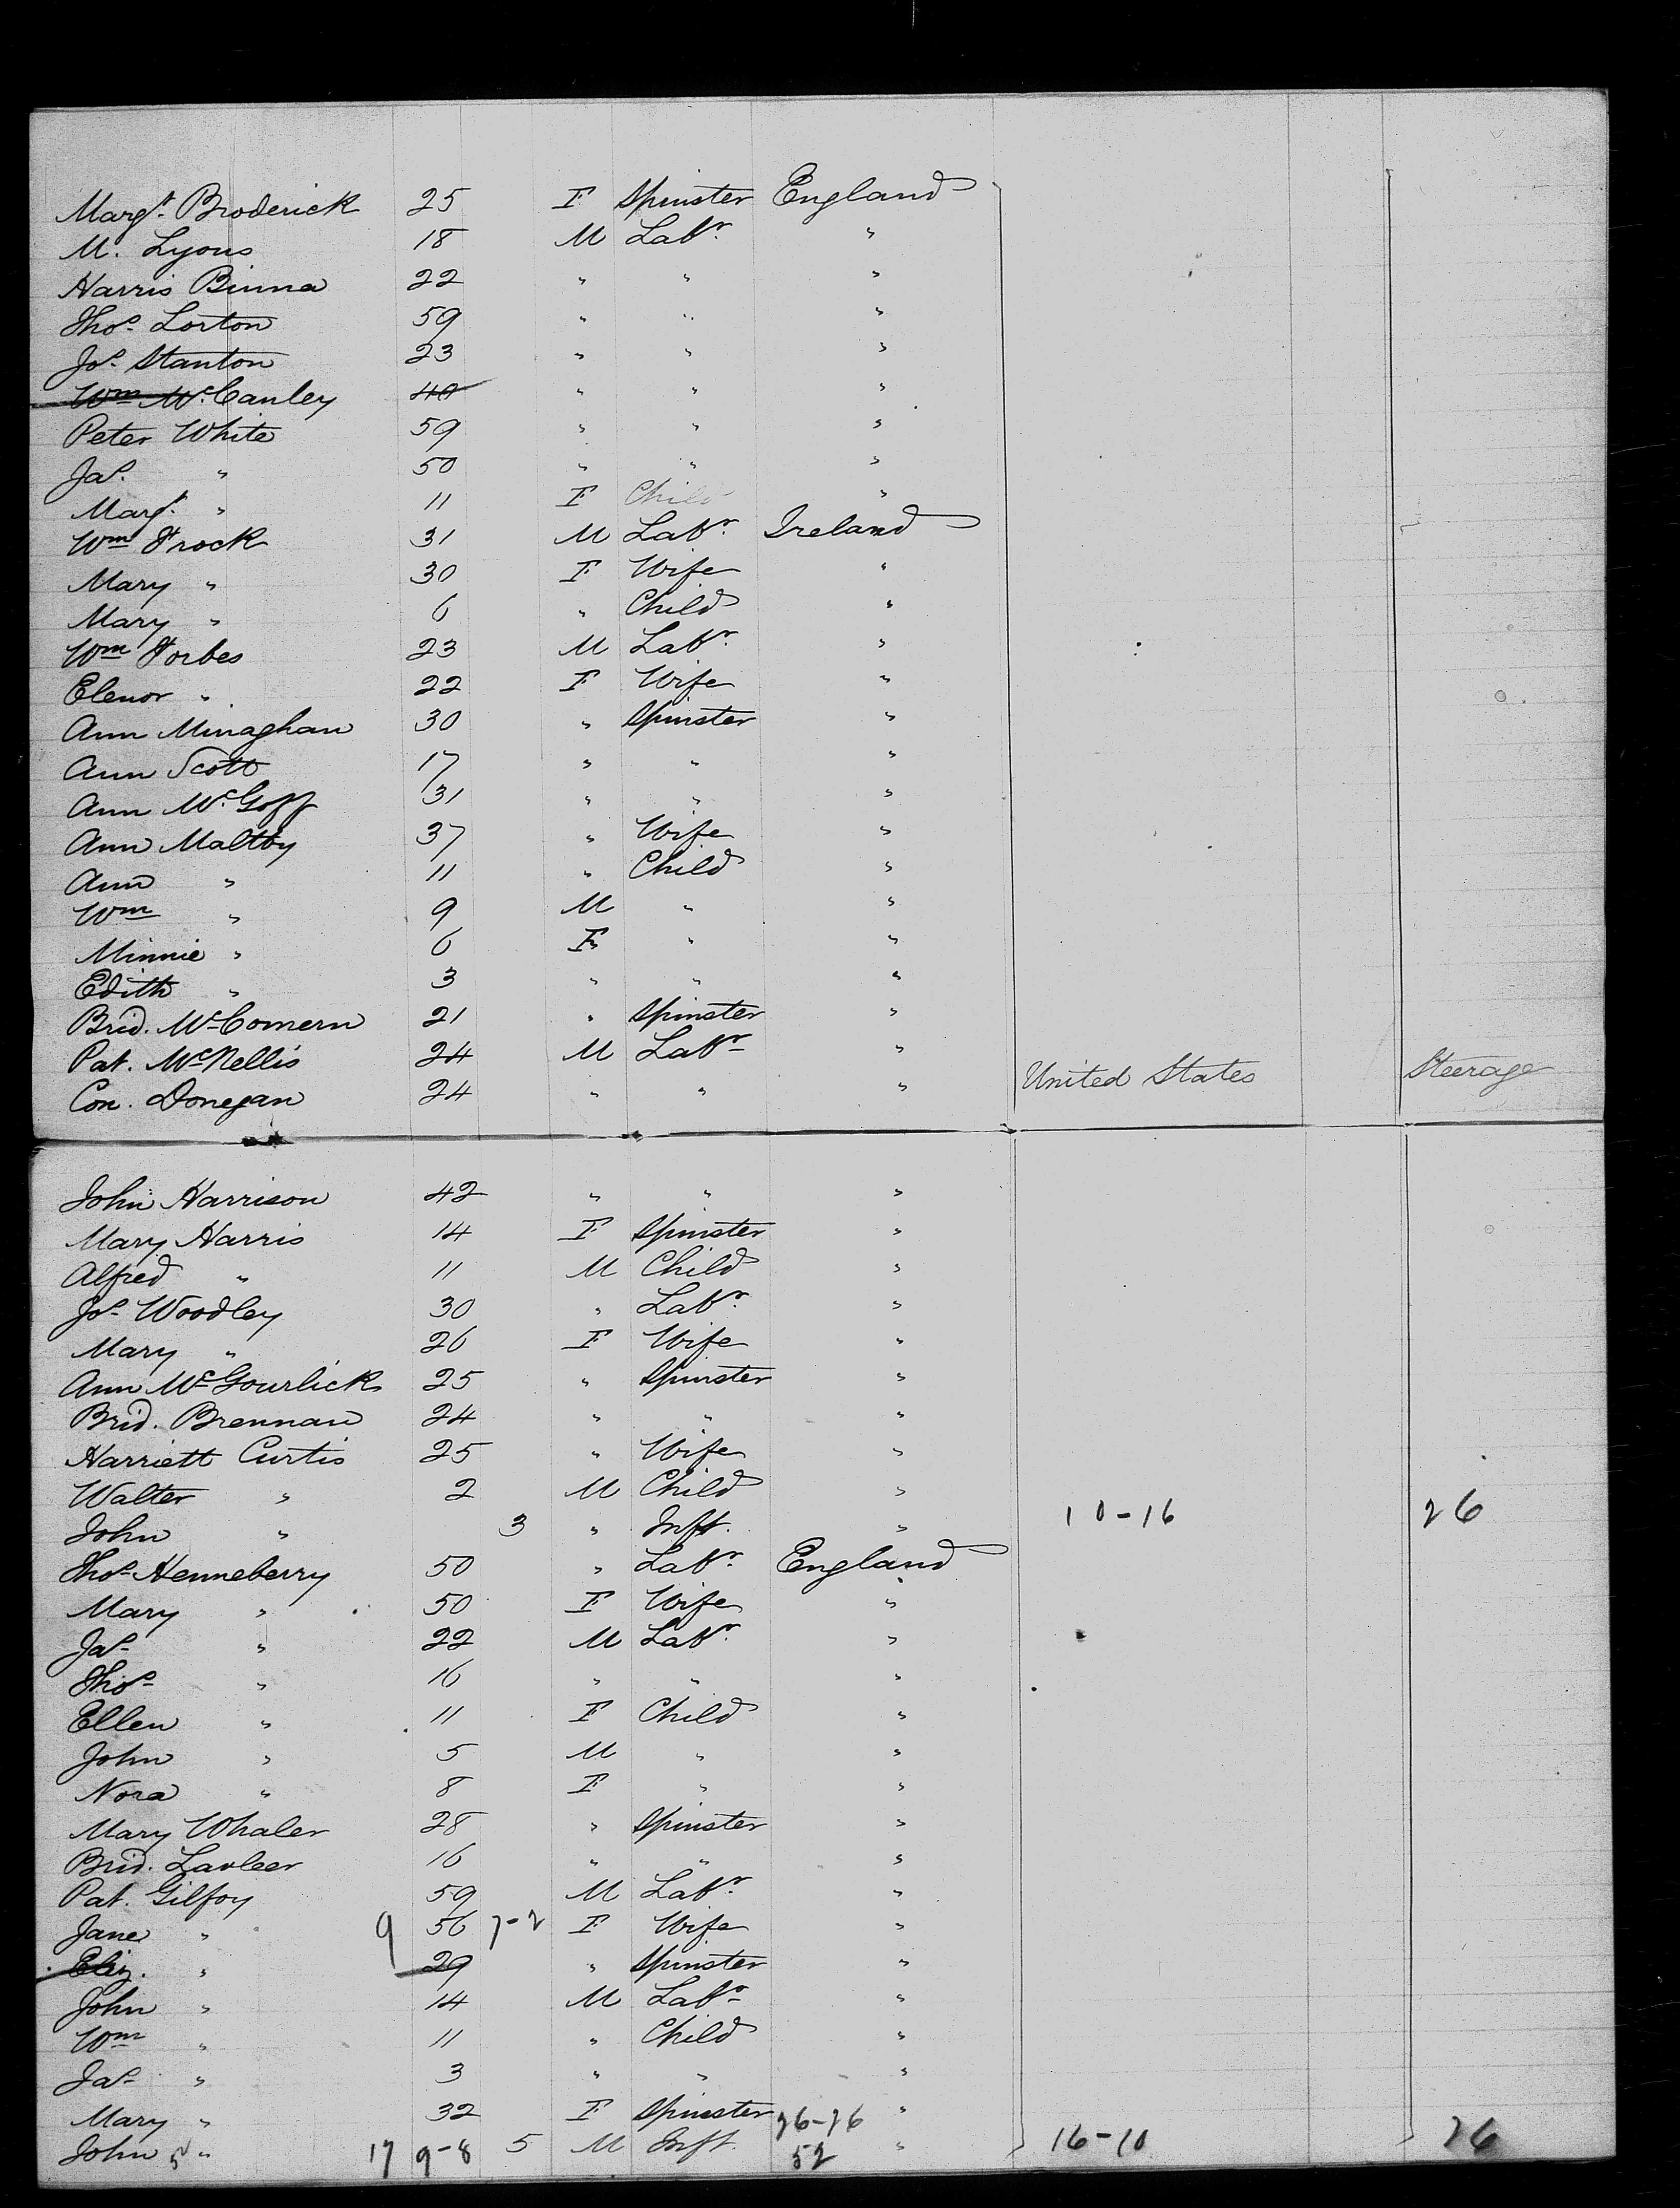 Margt. Broderick 25 F Spinster England
M. Lyons 18 M Labr. "
Harris Binna 22 " " "
Thos. Lorton 59 " " "
Jos. Stanton 23 " " "
Wm McCanley 40 " " "
Peter White 59 " " "
Jas. " 50 " " "
Margt. " 11 F Child "
Wm Frock 31 M Labr. Ireland
Mary " 30 F Wife "
Mary " 6 " Child "
Wm Forbes 23 M Labr. "
Elenor " 22 F Wife "
Ann Minaghan 30 " Spinster "
Ann Scott 17 " " "
Ann McGoff 31 " " "
Ann Maltby 37 " Wife "
Ann " 11 " Child "
Wm " 9 M " "
Minnie " 6 F " "
Edith " 3 " " "
Brid. McComern 21 " Spinster "
Pat. McNellis 24 M Labr "
Con. Donegan 24 " " " United States Steerage
John Harrison 42 " " "
Mary Harris 14 F Spinster "
Alfred " 11 M Child "
Jos. Woodley 30 " Labr. "
Mary " 26 F Wife "
Ann McGourlick 25 " Spinster "
Brid. Brennan 24 " " "
Harriett Curtis 25 " Wife "
Walter " 2 M Child "
John " 3 " Inft. " 10-16 26
Thos. Henneberry 50 " Labr. England
Mary " 50 F Wife "
Jas. " 22 M Labr. "
Thos. " 16 " " "
Ellen " 11 F Child "
John " 5 M " "
Nora " 8 F " "
Mary Whaler 28 " Spinster "
Brid. Lavleer 16 " " "
Pat. Gilfoy 59 M Labr. "
Jane " 9 56 7-2 F Wife "
Eliz. " 29 " Spinster "
John " 14 M Labr. "
Wm " 11 " Child "
Jas. " 3 " " "
Mary " 32 F Spinster 26-26 "
John " 17 9-8 5 M Inft. 52 " 16-10 26